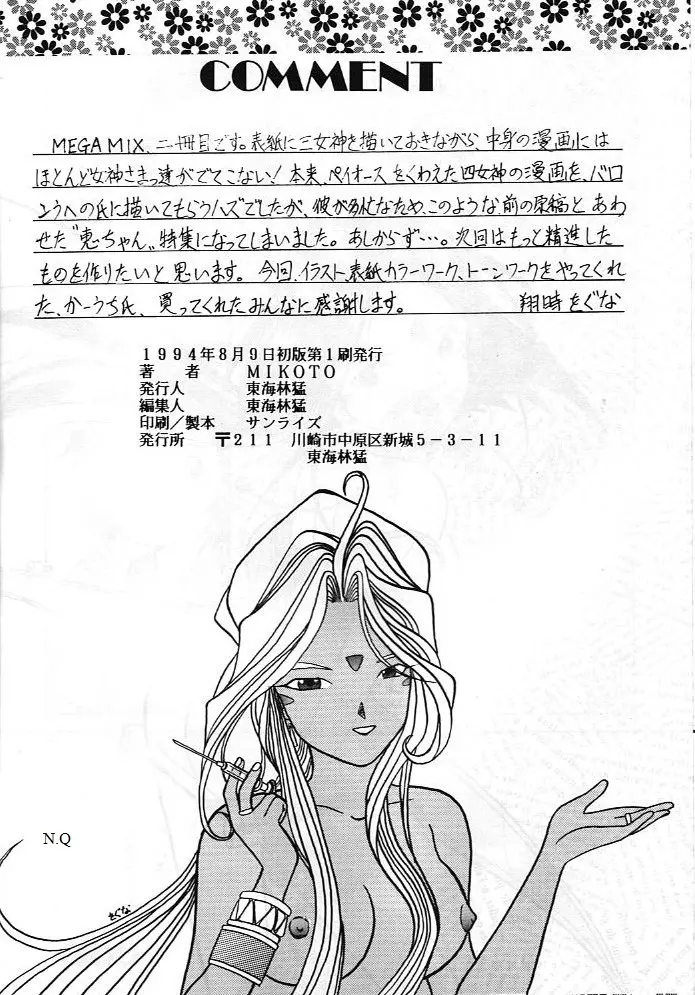 COMMENT
MEGAMIX、二冊目です。表紙に三女神を描いておきながら、中身の漫画には
ほとんど女神さまっ達がでてこない！本来、ペイオースをくわえた四女神の漫画を、バロ
ンうへの氏に描いてもらうハズでしたが、彼が多忙なため、このような前の原稿とあわ
せた"恵ちゃん"特集になってしまいました。あしからず…。次回はもっと精進した
ものを作りたいと思います。今回、イラスト、表紙カラーワーク、トーンワークをやってくれ
た、かーうち氏、買ってくれたみんなに感謝します。　翔時をぐな
１９９４年８月９日初版第１刷発行
著　者　ＭＩＫＯＴＯ
発行人　東海林猛
編集人　東海林猛
印刷／製本　サンライズ
発行所　〒２１１　川崎市中原区新城５－３－１１
東海林猛
N.Q
をぐな